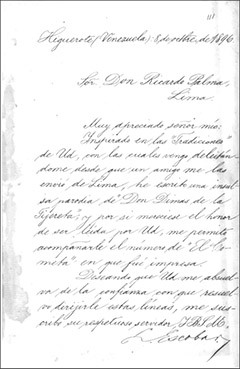 111
Higuerote (Venezuela) 8 de octbre de 1896
Sor. Don Ricardo Palma,
Lima.
Muy apreciado señor mío:
Inspirado en las "Tradiciones"
de Ud, con las cuales vengo deleitán
dome desde que un amigo me las
envió de Lima, he escrito una insul
sa parodia de "Don Dimas de la
Tijereta", y por si mereciese el honor
de ser leída por Ud, me permito
acompañarle el número de "El Co-
meta" en que fué impresa.
Deseando que Ud me absuel
va de la confianza con que resuel
vo dirijirle estas líneas, me sus-
cribo su respetuoso servidor
L. Escobar